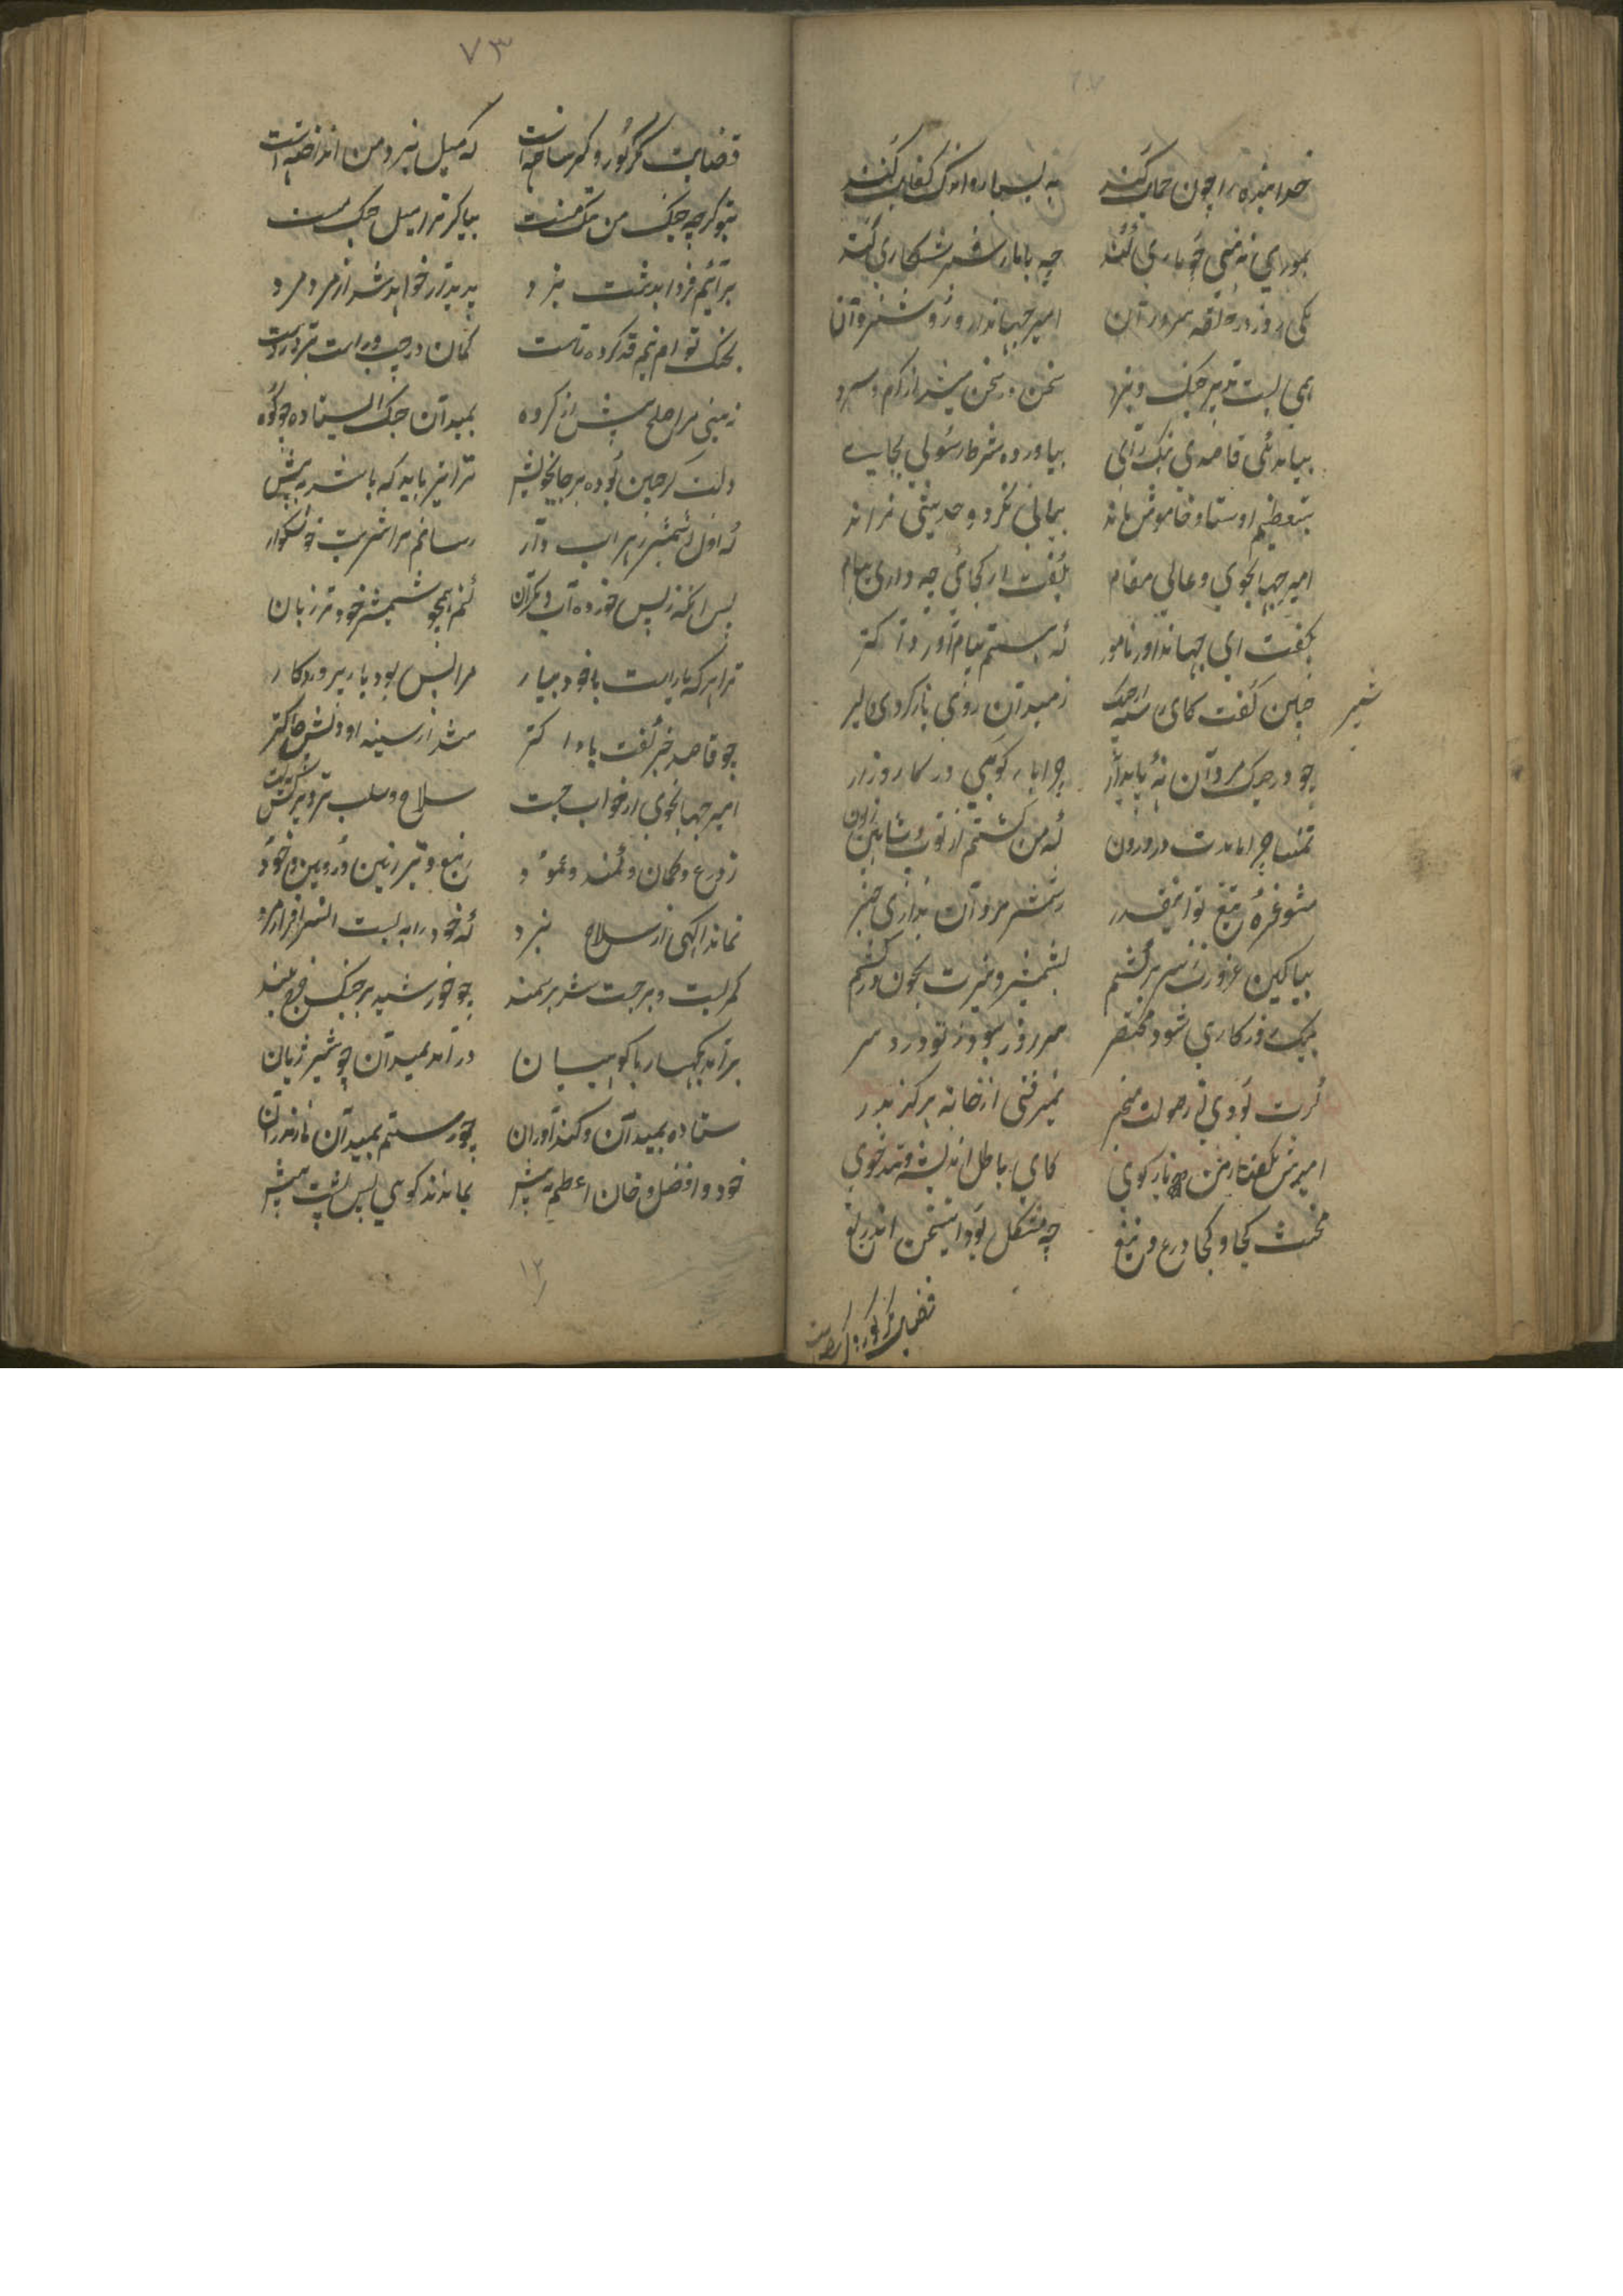 خدا بنده را چون حمایت کند به بسیار و اندک کفایت کند
بموری نه بینی چو یاری کند چه با مار شمشیرکاری کند
یکی روز در حلقه سروران امیر جهاندار و روشن روان
همی بست تدبیر جنگ و نبرد سخن در سخن میشد از گرم و سرد
بیامد یکی قاصدی نیک رای بیاورده شرط رسولی بجای
بتعظیم استاد و خاموش ماند بیانی نکرد و حدیثی نراند
امیر جهانجوی و عالی مقام بگفت از کجائی چه داری پیام
بگفت ای جهاندار نامور که هستم پیام آور از اکبر
چنین گفت کای از جنگ سیر ز میدان روی باز کردی دلیر
شیر
چو در جنگ مردان نه پایدار چرا پا بکوبی در کارزار
تمنا چرا باشدت در درون که من کشتم از تو زبون
مشو غره تیغ تو اینقدر ز شمشیر مردان نداری خبر
بیا کین غرورت ز سر برکشم بشمشیر و تیرت بخون درکشم
بیک ور کاری شود مختصر هر روز بودن تو دردسر
گرت بودی از صولت من خبر نمیرفتی از خانه هرگز بدر
امیرش بگفتا بمن باز گوی کای باطل اندیشه و تندخوی
مخنث کجا و کجا درع و تیغ چه مشکل بود اینسخن
قضایت گر کور و کر ساخته است
۷۳
قضایت گر کور و کر ساخته است که میل نبرد من انداخته است
بتو گرچه جنگ من ننگ منست بیا گر ترا میل جنگ منست
برآئیم فردا بدشت نبرد پدیدار خواهد شد از مرد مرد
بجنگ توام نیم قد کرده راست کمان در چپ و راست تیر در راست
زمینی مرا صلح پیش از گروه بمیدان جنگ ایستاده چو کوه
دلت گر چنین بوده بر جای خویش ترا نیز باید که باشی به پیش
که اول ز شمشیر زهر آب دار رسانم ترا شربت خوشگوار
پس آنگه ز پس خورده آب دیگران کنم همچو شمشیر خود تر زبان
ترا هر که یار است با خود بیار مرا بس بود یار پروردگار
چو قاصد خبر گفت با اکبر شد از سینه او دلش چاک تر
امیر جهانجوی از خواب جست سلاح و سلب تیر و ترکش
ز درع و کمان و کمند و عمود ز تیغ و تبرزین و زوبین و خود
نماند آگهی از سلاح نبرد که خود را به بست آن سرافراز مرد
کمر بست و برجست شد بر سمند چو خورشید بر جنگ چرخ بلند
برآمد بکهسار با کوهیان درآمد بمیدان چو شیر ژیان
ستاده بمیدان و کند آوران چو رستم بمیدان مازندران
خود و افضل و خان اعظم به پیش بماندند کوهی پس پشت خویش
۱۲